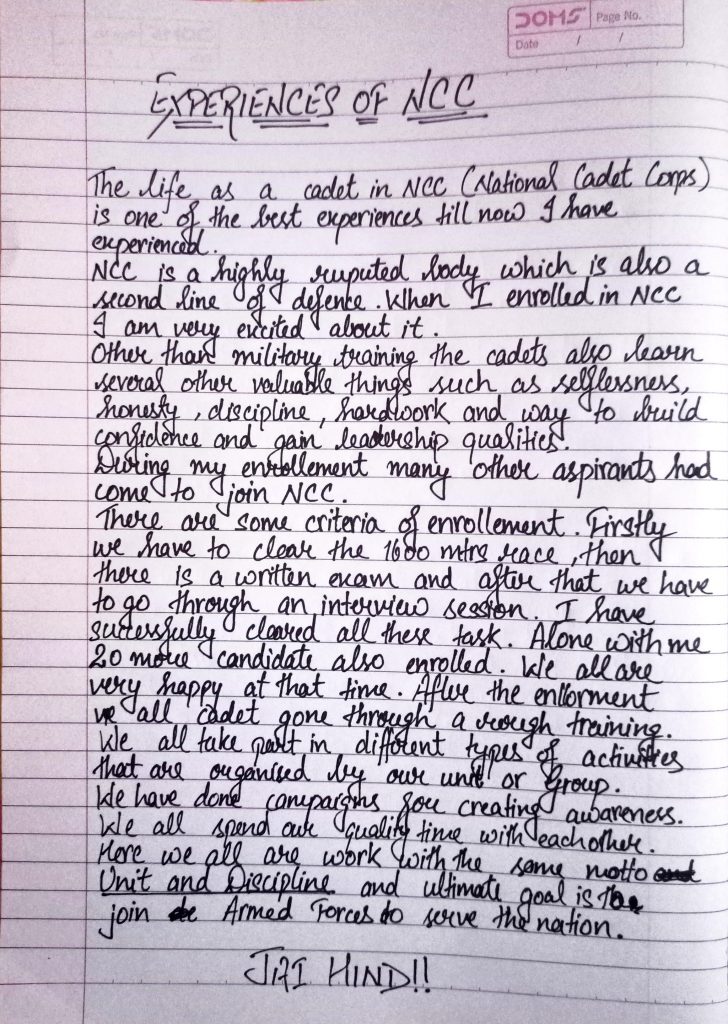 DOMS
Page No.
Date / /
EXPERIENCES OF NCC
The life as a cadet in NCC (National Cadet Corps)
is one of the best experiences till now I have
experienced.
NCC is a highly ruputed body which is also a
second line of defence. When I enrolled in NCC
I am very excited about it.
Other than military training the cadets also learn
several other valuable things such as selflessness,
honesty, discipline, hardwork and way to build
confidence and gain leadership qualities.
During my enrollement many other aspirants had
come to join NCC.
There are some criteria of enrollement. Firstly
we have to clear the 1600 mtrs race, then
there is a written exam and after that we have
to go through an interview session. I have
successfully cleared all these task. Alone with me
20 more candidate also enrolled. We all are
very happy at that time. After the enllorment
we all cadet gone through a rough training.
We all take part in different types of activities
that are organised by our unit or Group.
We have done campaigns for creating awareness.
We all spend our quality time with eachother.
Here we all are work with the same motto
Unit and Discipline and ultimate goal is to
join Armed Forces to serve the nation.
JAI HIND!!